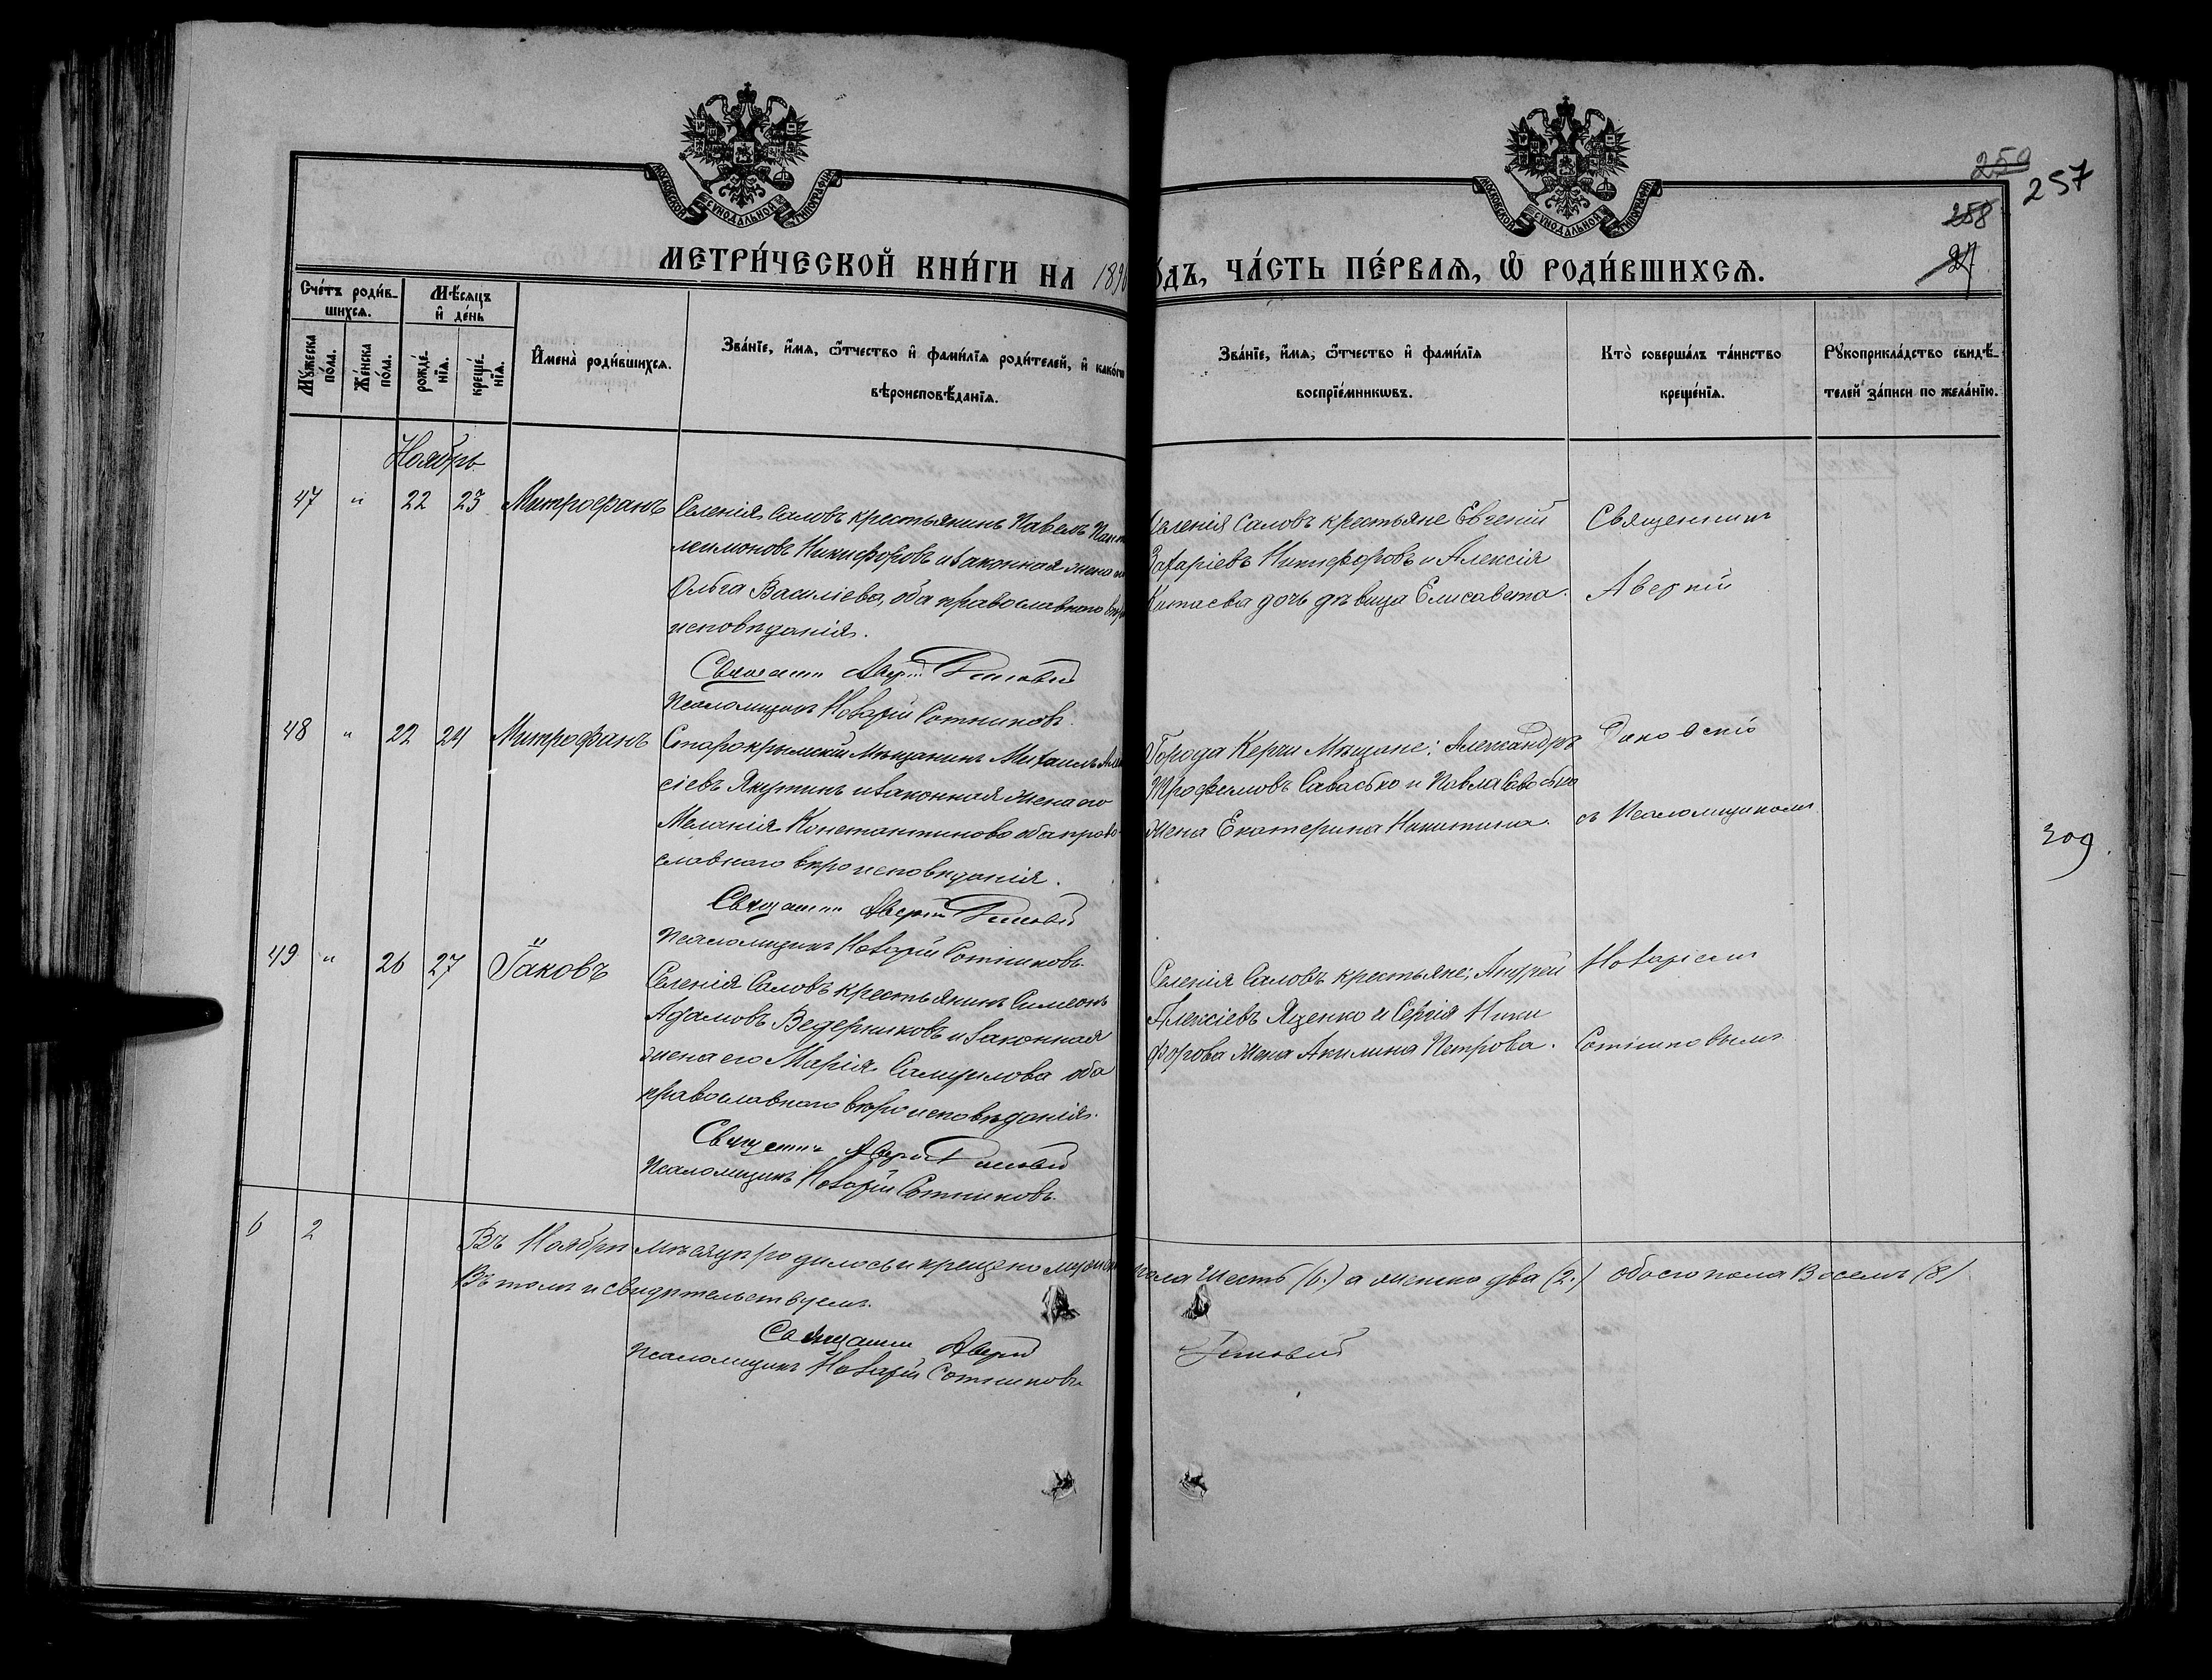 МОСКОВСКОЙ СУНОДАЛЬНОЙ ТИПОГРАФІИ
МОСКОВСКОЙ СУНОДАЛЬНОЙ ТИПОГРАФІИ
259
257
258
27
МЕТРИ́ЧЕСКОЙ КНИ́ГИ НА 189
О́ДЪ, ЧА́СТЬ ПЕ́РВАѦ, Ѡ РОДИ́ВШИХСѦ.
Сче́тъ роди́в-
шихсѧ.
Мѣ́сѧцъ
и҆ де́нь
Мꙋ́жеска
по́ла.
Же́нска
по́ла.
рожде́-
нїѧ.
креще́-
нїѧ.
И҆мена̀ роди́вшихсѧ.
Зва́нїе, и҆́мѧ, ѻ҆́тчество и҆ фами́лїѧ роди́телей, и҆ како́гѡ
вѣроисповѣ́данїѧ.
Зва́нїе, и҆́мѧ, ѻ҆́тчество и҆ фами́лїѧ
воспрїе́мникѡвъ.
Кто̀ соверша́лъ та́инство
креще́нїѧ.
Рꙋкоприкла́дство свидѣ́-
телей за́писи по жела́нїю.
Ноябрь
47 " 22 23 Митрофанъ Селенія Саловъ крестьянинъ Павелъ Пант
леимоновъ Никифоровъ и законная жена
Ольга Василіева, оба православнаго вѣро
исповѣданія.
Священникъ Аверкій
Псаломщикъ Назарій Сотниковъ.
Селенія Саловъ крестьяне Евгеній
Захаріевъ Никифоровъ и Алексія
Китаева дочь дѣвица Елисавета.
Священникъ
Аверкій
48 " 22 24 Митрофанъ Старокрымскій Мѣщанинъ Михаилъ Але
сіевъ Якутинъ и законная жена его
Меланія Константинова оба право-
славнаго вѣроисповѣданія.
Священникъ Аверкій
Псаломщикъ Назарій Сотниковъ.
Города Керчи Мѣщане: Александръ
Трофимовъ Савасько и Павла Савасько
жена Екатерина Никитина.
съ Псаломщикомъ
309.
49 " 26 27 Іаковъ
Селенія Саловъ крестьянинъ Симеонъ
Адамовъ Ведерниковъ и законная
жена его Марія Самуилова оба
православнаго вѣроисповѣданія.
Священникъ Аверкій
Псаломщикъ Назарій Сотниковъ.
Селенія Саловъ крестьяне: Андрей
Алексіевъ Яценко и Сергія Ники
форова жена Акилина Петрова.
Назаріемъ
Сотниковымъ.
6 2
Въ Ноябрѣ мѣсяцѣ родилось и крещено мужска
пола шесть (6.) а женска два (2.) обоего пола Восемь (8)
Въ томъ и свидѣтельствуемъ.
Священникъ Аверкій
Псаломщикъ Назарій Сотниковъ